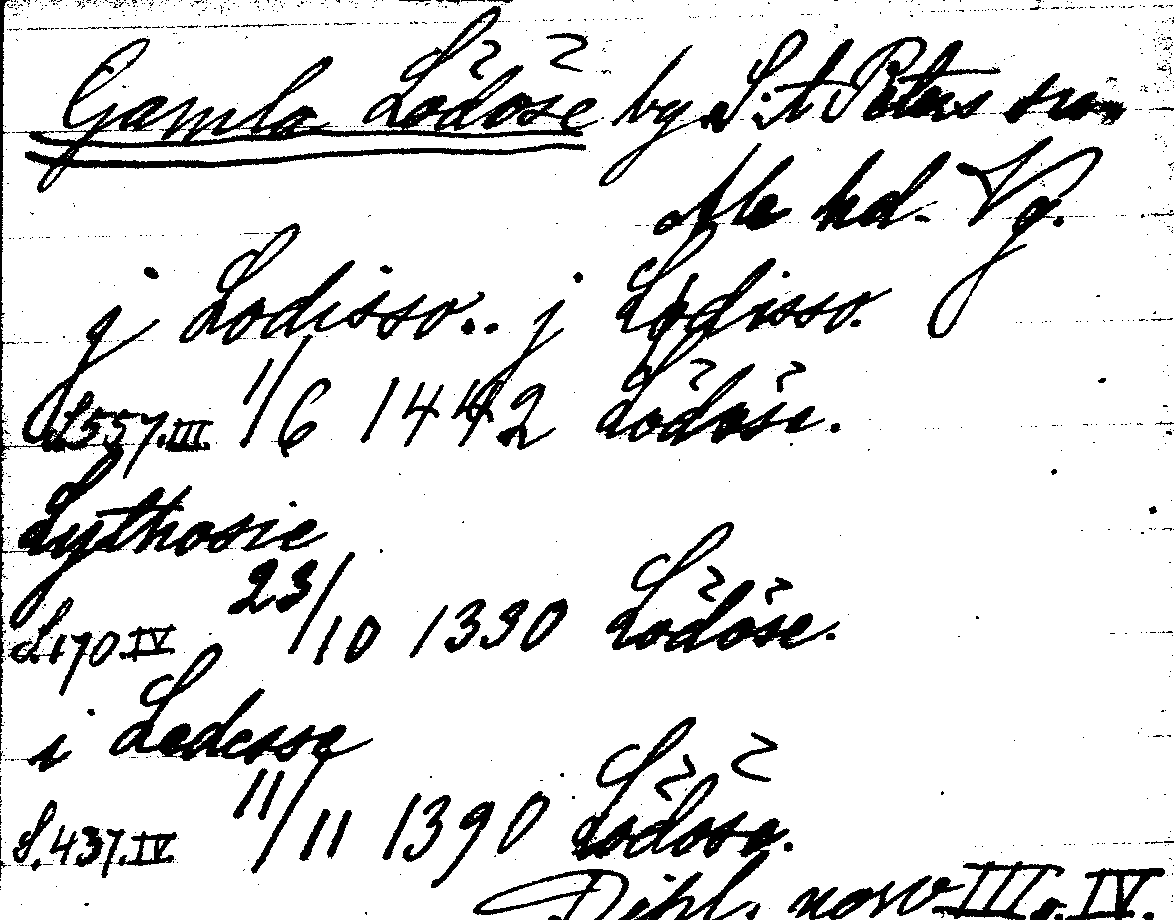 Gamla Lödöse by S:t Peters sn
Ale hd. Vg.
j Lodisso.. j Lodisso.
S557.III. 1/6 1442 Lödöse.
Lythosie
S.170 IV 23/10 1330 Lödöse.
i Ledesse
S.437.IV. 11/11 1390 Lödöse.
Dipl. nov III o. IV.